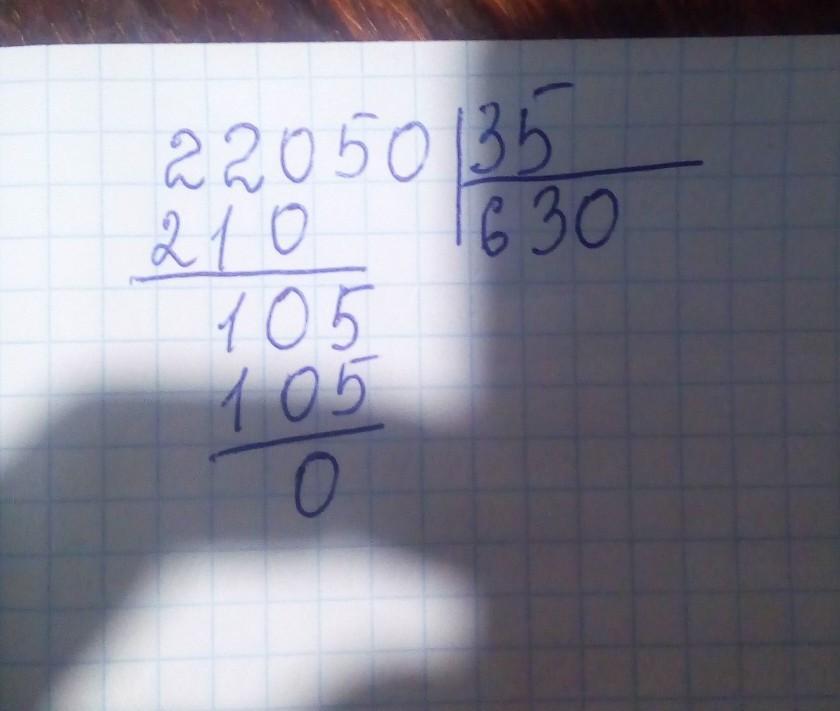 22050 35
210 630
105
105
0